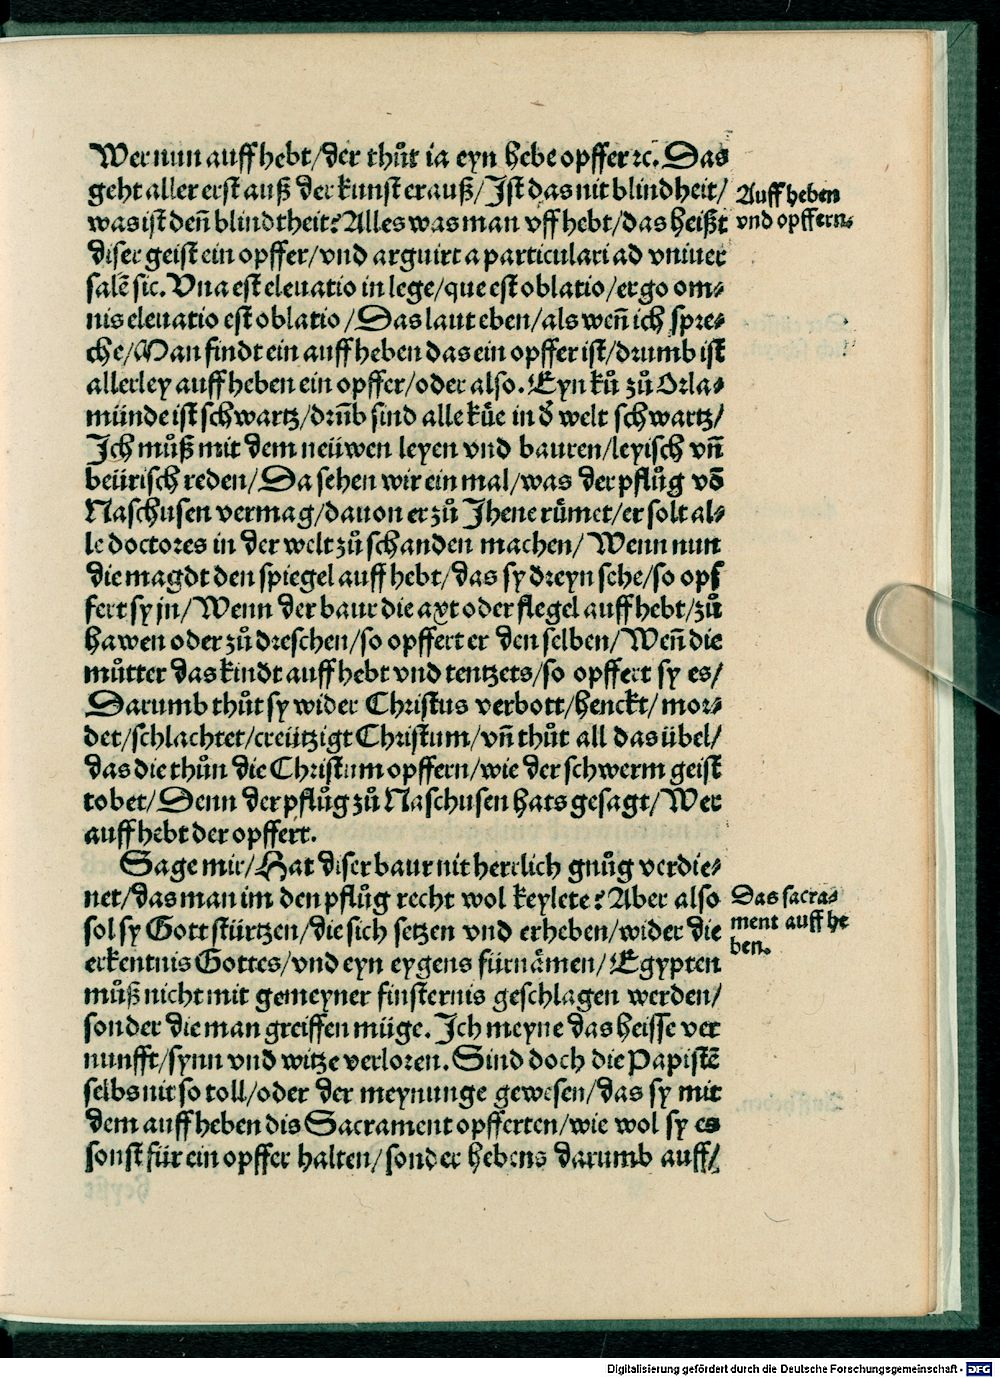 Wer nun auff hebt/der thůt ia eyn hebe opffer ꝛc. Das
geht aller erst auß der kunst erauß/Ist das nit blindheit/
was ist deñ blindtheit? Alles was man vff hebt/das heißt
diser geist ein opffer/vnd arguirt a particulari ad vniuer
salē sic. Vna est eleuatio in lege/que est oblatio/ergo om⸗
nis eleuatio est oblatio/Das laut eben/als weñ ich spre⸗
che/Man findt ein auff heben das ein opffer ist/drumb ist
allerley auff heben ein opffer/oder also. Eyn ků zů Orla⸗
münde ist schwartz/drūb sind alle kůe in d̄ welt schwartz/
Ich můß mit dem neüwen leyen vnd bauren/leyisch vñ
beürisch reden/Da sehen wir ein mal/was der pflůg vō
Naschusen vermag/dauon er zů Jhene růmet/er solt al⸗
le doctores in der welt zů schanden machen/Wenn nun
die magdt den spiegel auff hebt/das sy dreyn sehe/so opf
fert sy jn/Wenn der baur die axt oder flegel auff hebt/zů
hawen oder zů dreschen/so opffert er den selben/Weñ die
můtter das kindt auff hebt vnd tentzets/so opffert sy es/
Darumb thůt sy wider Christus verbott/henckt/mor⸗
det/schlachtet/creützigt Christum/vñ thůt all das übel/
das die thůn die Christum opffern/wie der schwerm geist
tobet/Denn der pflůg zů Naschusen hats gesagt/Wer
auff hebt der opffert.
Sage mir/Hat diser baur nit herrlich gnůg verdie⸗
net/das man im den pflůg recht wol keylete? Aber also
sol sy Gott stürtzen/die sich setzen vnd erheben/wider die
erkentnis Gottes/vnd eyn eygens fürnämen/Egypten
můß nicht mit gemeyner finsternis geschlagen werden/
sonder die man greiffen müge. Ich meyne das heisse ver
nunfft/synn vnd witze verloren. Sind doch die Papistē
selbs nit so toll/oder der meynunge gewesen/das sy mit
dem auff heben dis Sacrament opfferten/wie wol sy es
sonst für ein opffer halten/sonder hebens darumb auff/
Auff heben
vnd opffern.
Das sacra⸗
ment auff he
ben.
Digitalisierung gefördert durch die Deutsche Forschungsgemeinschaft - DFG